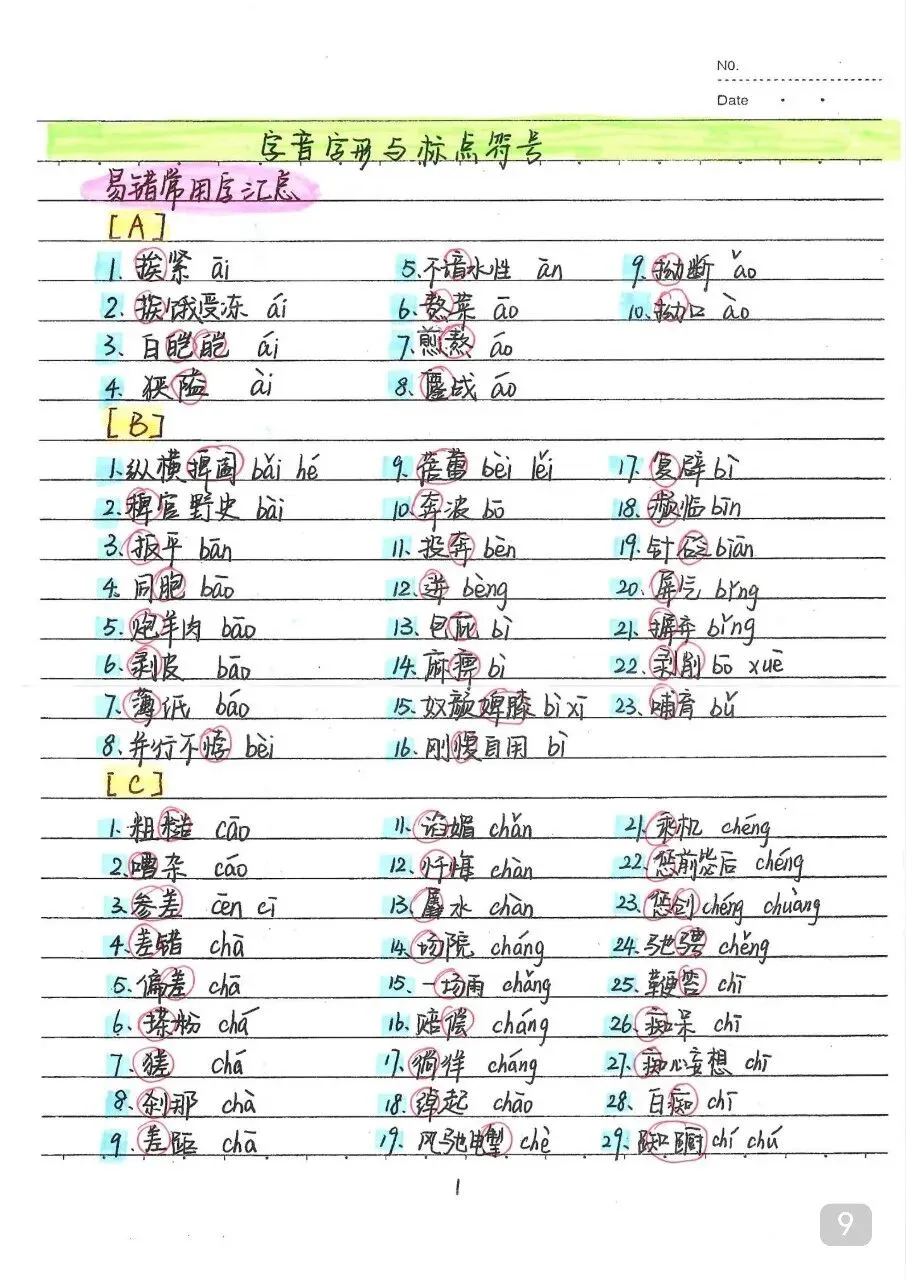 NO.
Date
字音字形与标点符号
易错常用字汇总
[A]
1. 挨紧 āi
2. 挨饿受冻 ái
3、白皑皑 ái
4. 狭隘 ài
5.不谙水性 ān
6、熬菜 āo
7.煎熬 áo
8、鏖战 áo
9. 拗断 ǎo
10.拗口 ào
[B]
1.纵横捭阖 bǎi hé
2.稗官野史 bài
3、扳平 bān
4. 同胞 bāo
5、炮羊肉 bāo
6、剥皮 bāo
7、薄纸 báo
8、并行不悖 bèi
9、蓓蕾 bèi lěi
10、奔波 bō
11、投奔 bèn
12、迸 bèng
13、包庇 bì
14、麻痹 bì
15、奴颜婢膝 bì xī
16、刚愎自用 bì
17、复辟 bì
18、濒临 bīn
19、针砭 biān
20、屏气 bǐng
21、摒弃 bǐng
22、剥削 bō xuē
23、哺育 bǔ
[C]
1、粗糙 cāo
2、嘈杂 cáo
3、参差 cēn cī
4、差错 chā
5、偏差 chā
6、搽粉 chá
7、猹 chá
8、刹那 chà
9、差距 chā
11、谄媚 chǎn
12、忏悔 chàn
13、羼水 chàn
14、场院 cháng
15、一场雨 chǎng
16、赔偿 cháng
17、徜徉 cháng
18、绰起 chāo
19、风驰电掣 chè
21、乘机 chéng
22、惩前毖后 chéng
23、惩创 chéng chuàng
24、驰骋 chěng
25、鞭笞 chī
26、痴呆 chī
27、痴心妄想 chī
28、白痴 chī
29、踟蹰 chí chú
1
9